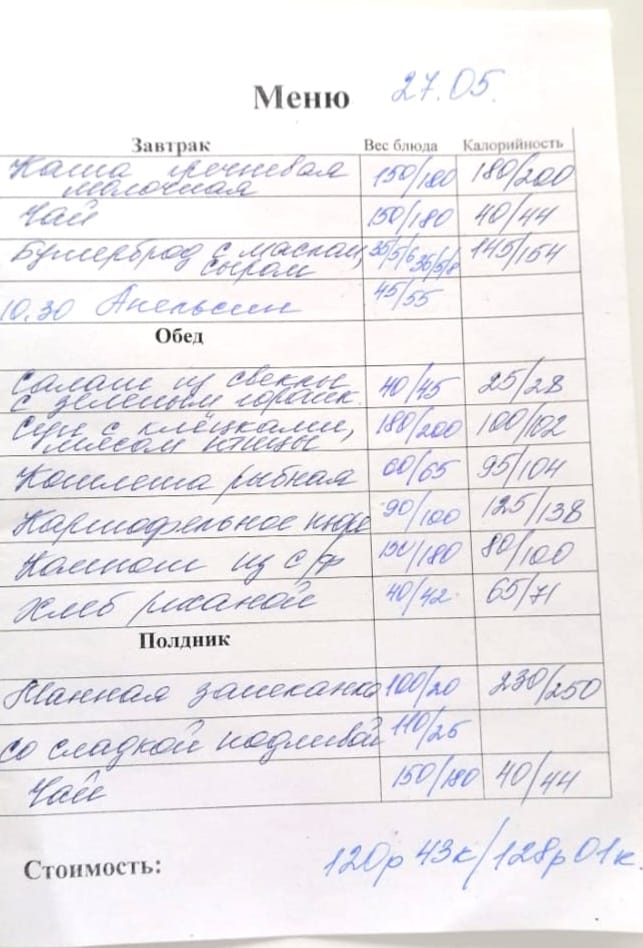 Меню 27.05.
Завтрак Вес блюда Калорийность
Каша гречневая 150/180 180/200
молочная
Чай 150/180 40/44
Бутерброд с маслом, 35/5/6 35/5/8 145/154
сыром
10.30 Апельсин 45/55
Обед
Салат из свеклы 40/45 25/28
с зеленым горошк.
Суп с клёцками, 180/200 100/102
мясом птицы
Котлета рыбная 60/65 95/104
Картофельное пюре 90/100 125/138
Компот из с/ф 150/180 80/100
Хлеб ржаной 40/42 65/71
Полдник
Манная запеканка 100/20 230/250
со сладкой подливой 110/25
Чай 150/180 40/44
Стоимость: 120р 43к/128р 01к.